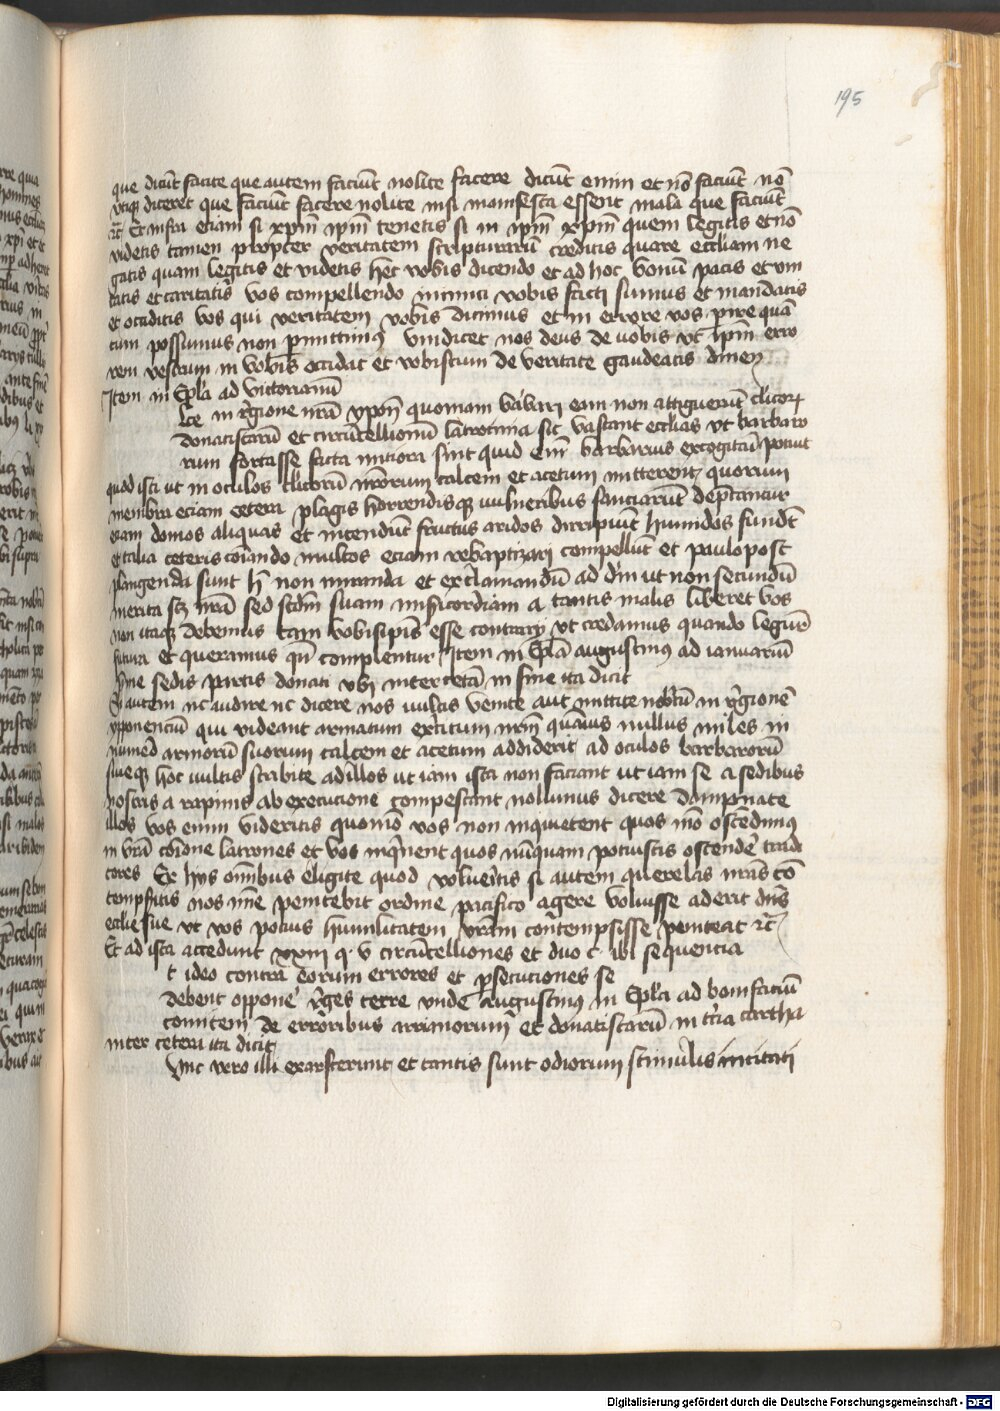 195
que dicūt facite que autem faciūt nolite facere dicūt enim et nō faciūt nō
utiqꝫ diceret que faciūt facere nolite nisi manifesta essent mala que faciūt
ꝛc̄ Et infra eciam si xp̄m ip̄m tenetis si in ip̄m xp̄m quem legitis et nō
videtis tamen propter veritatem scripturarū creditis quare eccliam ne
gatis quam legitis et videtis hec vobis dicendo et ad hoc bonū pacis et vni
tatis et caritatis vos compellendo inimici vobis fcti sumus et mandatis
et occiditis vos qui veritatem vobis dicimus et in errore vos perire quā
tum possumus non permittimꝰ vindicet nos deus de vobis vt ip̄m erro
rem vestrum in vobis occidat et vobiscum de veritate gaudeatis Amen
Item in Epl̄a ad victorianū
Ecce in regione nrā ypon̄ quoniam barbari eam non attiguerūt clicorꝝ
donatistarū et circūcellionū latrocinia sic vastant ecclias vt barbaro
rum fortasse facta mitiora sint quid em̄ barbarus excogitare potuit
quod isti ut in oculos clicorū nrōrum calcem et acetum mitterent quorum
membra eciam cetera plagis horrendisqꝫ vulneribus sauciarūt depdantur
eciam domos aliquas et incendūt fructus aridos diripiūt humidos fundūt
et talia ceteris comīando multos eciam rebaptizari compellūt et paulopost
plangenda sunt h̄ non miranda et exclamandū ad dm̄ ut non secundū
merita scꝫ nrā sed scdm̄ suam misericordiam a tantis malis liberet vos
non itaqꝫ debemus tam vobisip̄is esse contrarij vt credamus quando legiūt
futura et queramus qn̄ complentur Item in Epl̄a augustinꝰ ad ianuariū
sedis partis donati vbi inter cetā in fine ita dicit
Si autem nc audire nc dicere nos vultis venite aut mittite nobcū in regionē
ypponenciū qui videant armatum exercitum nrm̄ quāvis nullus miles in
numed armorū suorum calcem et acetum addiderit ad oculos barbarorū
siueqꝫ hoc vultis scribite ad illos ut iam ista non faciant ut iam se a sedibus
nostris a rapinis ab execucione compescant nollumus dicere dampnate
illos vos enim videritis quomō vos non inquietent quos mō ostedimꝰ
in vrā cōione latrones et vos inqnent quos nūquam potuistis ostendere tradi
tores Ex hijs omībus eligite quod volueritis si autem querelas nrās cō
tempseritis nos mīe penitebit ordine pacifico agere voluisse aderit dn̄s
ecclie sue vt vos potius humilitatem vrām contempsisse peniteat ꝛc̄
Et ad ista accedunt xxiij q. v circūcelliones et duo c. ibi sequencia
t ideo contra eorum errores et persecuciones se
debent opponere reges terre unde Augustinus in Epl̄a ad bonifaciū
comitem de erroribus arrianorum et donatistarū in tcia cartha
inter cetera ita dicit
unc vero illi exarserunt et tantis sunt odiorum stimulis incitati
Digitalisierung gefördert durch die Deutsche Forschungsgemeinschaft - DFG